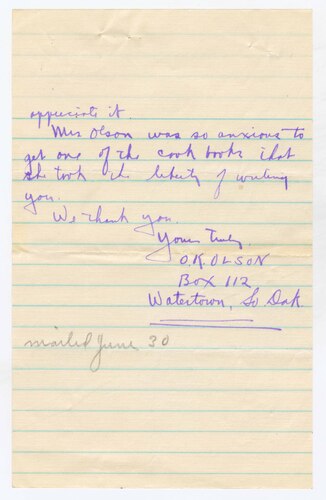 appreciate it.
Mrs Olson was so anxious to
get one of the cook books that
she took the liberty of writing
you.
We thank you.
Yours truly
O.K. OLSON
Box 112
Watertown, So Dak.
mailed June 30